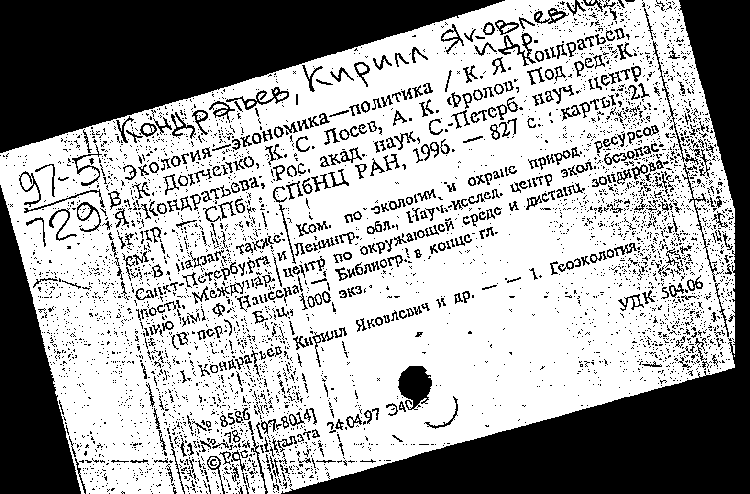 Кондратьев, Кирилл Яковлевич
и др.
97-5
729
Экология—экономика—политика / К. Я. Кондратьев,
В. К. Донченко, К. С. Лосев, А. К. Фролов; Под ред. К.
Я. Кондратьева; Рос. акад. наук, С.-Петерб. науч. центр
и др. — СПб. : СПбНЦ РАН, 1996. — 827 с. : карты; 21
см.
В надзаг. также: Ком. по экологии и охране природ. ресурсов
Санкт-Петербурга и Ленингр. обл., Науч.-исслед. центр экол. безопас-
ности, Междунар. центр по окружающей среде и дистанц. зондирова-
нию им. Ф. Нансена. — Библиогр. в конце гл.
(В пер.) Б. ц., 1000 экз.
1. Кондратьев, Кирилл Яковлевич и др. — — 1. Геоэкология.
УДК 504.06
№ 8586
[1 № 78 [97-8014]
© Рос. кн. палата 24.04.97